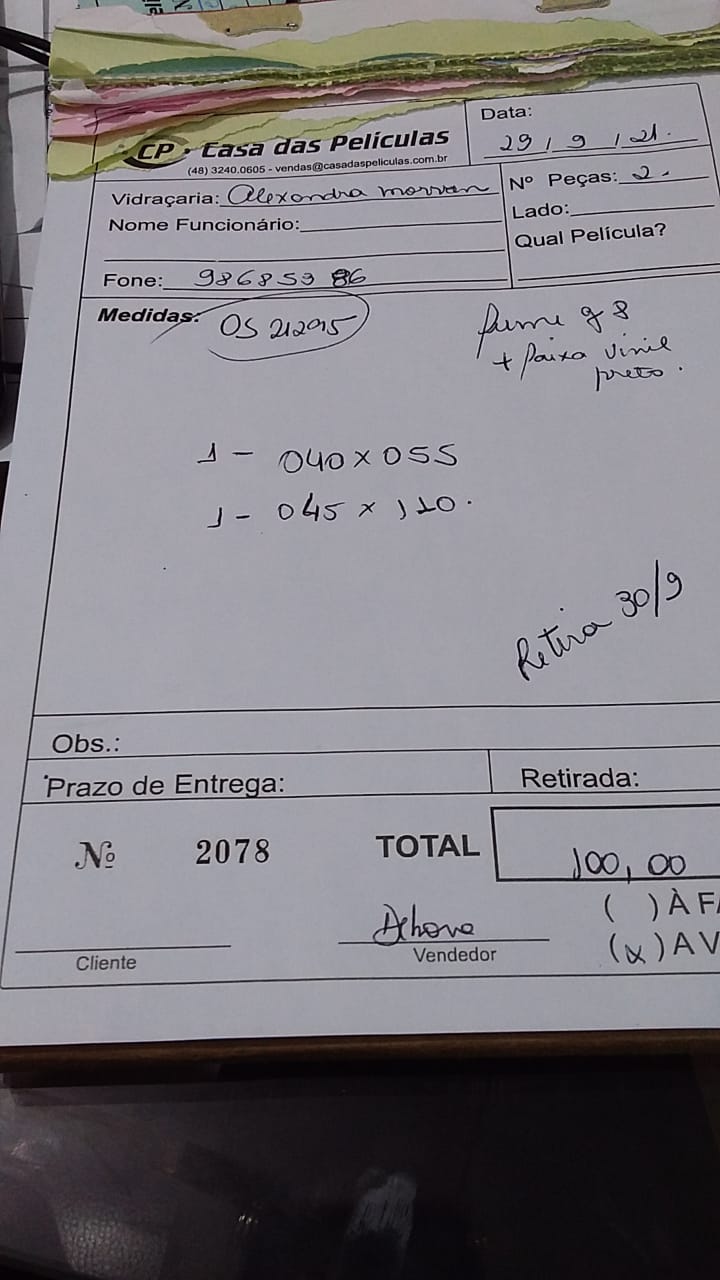 CP · Casa das Películas
(48) 3240.0605 - vendas@casadaspeliculas.com.br
Data:
29 / 9 / 21.
Vidraçaria: Alexandra
Nº Peças: 2.
Nome Funcionário:
Lado:
Qual Película?
Fone: 98685986
Medidas: OS 212915
fume g 8
+ faixa vinil
preto.
1 - 040 x 055
1 - 045 x 110.
Retira 30/9
Obs.:
Prazo de Entrega:
Retirada:
Nº 2078
TOTAL
100,00
( ) À FA
(x) A V
Cliente
Vendedor